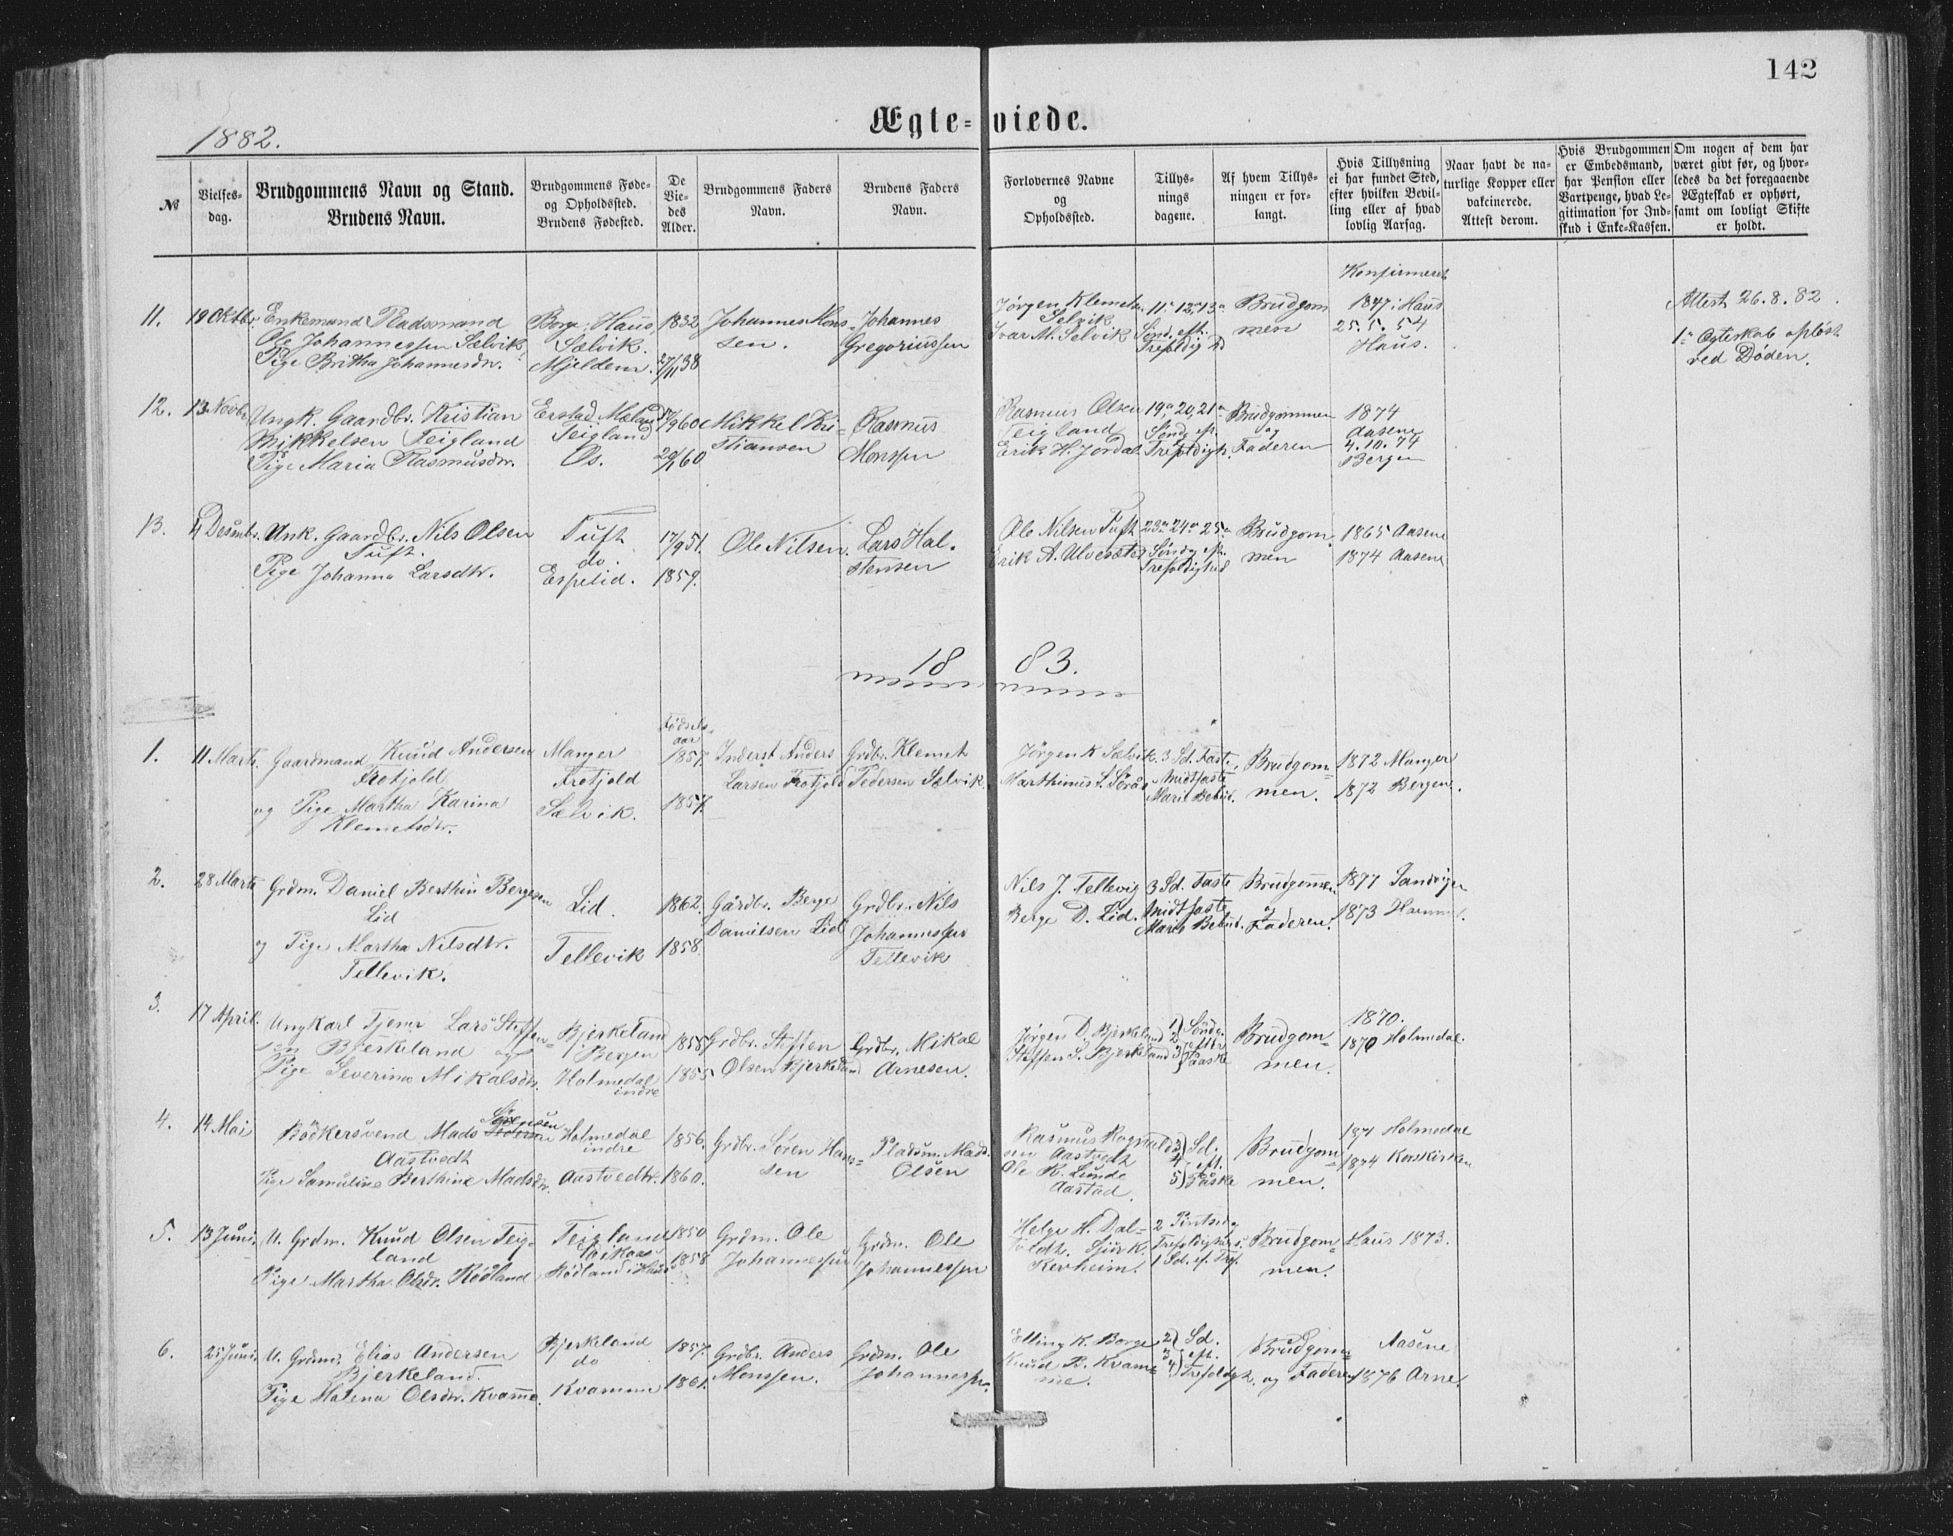 142
Ægte-viede.
1882.
№
Vielses-
dag.
Brudgommens Navn og Stand.
Brudens Navn.
Brudgommens Føde-
og Opholdssted.
Brudens Fødested.
De
Vie-
des
Alder.
Brudgommens Faders
Navn.
Brudens Faders
Navn.
Forlovernes Navne
og
Opholdssted.
Tillys-
nings
dagene.
Af hvem Tillys-
ningen er for-
langt.
Hvis Tillysning
ei har fundet Sted,
efter hvilken Bevil-
ling eller af hvad
lovlig Aarsag.
Naar havt de na-
turlige Kopper eller
vakcinerede.
Attest derom.
Hvis Brudgommen
er Embedsmand,
har Pension eller
Vartpenge, hvad Le-
gitimation for Ind-
skud i Enke-Kassen.
Om nogen af dem har
været givt før, og hvor-
ledes da det foregaaende
Ægteskab er ophørt,
samt om lovligt Skifte
er holdt.
11.
19 Oktbr.
Enkemand Pladsmand
Ole Johannessen Sælvik
Pige Britha Johannesdr.
Borge i Haus
Sælvik.
Mjeldem.
1832
27/11 38
Johannes Mons-
sen.
Johannes
Gregoriussen
Jørgen Klemetsen
Selvik
Ivar M. Selvik
11te 12te 13de
Sönd. eft.
Trefoldighd
Brudgom
men
Konfirmeret
1847 i Haus
25.5.54
Haus.
Attest 26.8.82.
1ste Ægteskab opløst
ved Døden.
12.
13 Novbr
Ungk. Gaardbr. Kristian
Mikkelsen Teigland
Pige Maria Rasmusdr.
Erstad Meland
Teigland
Os.
/9 60
29/1 60
Mikkel Kri-
stiansen
Rasmus
Monssen
Rasmus Olsen
Teigland
Erik H. Jordal
19de, 20, 21de
Sönd. eft.
Trefoldigh.
Brudgommen
og
Faderen
1874
Aasene
4.10.74
Bergen
13.
4 Desmbr.
Unk. Gaardbr. Nils Olsen
Tuft.
Pige Johanna Larsdtr.
Tuft
do.
Espelid.
17/9 51.
1859.
Ole Nilsen
Lars Hal-
stensen
Ole Nilsen Tuft
Erik A. Ulvesæter
23de 24de 25de
Sönd. eft.
Trefoldighed
Brudgom
men
1865 Aasene
1874 Aasene
1883.
1.
11 Marts
Gaardmand Knud Andersen
Frotjold
og Pige Martha Karina
Klemetsdtr.
Manger
Frotjold
Sælvik.
Fødsels-
aar
1857.
1857.
Inderst Anders
Larsen Frotjold
Grdbr. Klemet
Pedersen Sælvik
Jörgen K Sælvik
Marthinus S. Söråd
3 Sd. Faste
Midtfaste
Mariæ Bebud.
Brudgom-
men.
1872 Manger
1872 Bergen.
2.
28 Marts
Grdm. Daniel Berthin Bergesen
Lid
og Pige Martha Nilsdtr.
Tellevik.
Lid.
Tellevik
1862.
1858.
Gårdbr. Berge
Danielsen Lid
Grdbr. Nils
Johannessen
Tellevik
Nils J. Tellevig
Berge D. Lid.
3 Sd. Faste
Midtfaste
Mariæ Bebud.
Brudgommen
og
Faderen.
1877 Sandvigen
1873 Hammer.
3.
17 April.
Ungkarl Tjener Lars Steffen-
sen Bjerkeland og
Pige Severine Mikalsdtr.
Bjerkeland
Bergen
Holmedal
indre
1855
1855
Grdbr. Steffen
Olsen Bjerkeland
Grdbr. Mikal
Arnesen.
Jörgen D. Bjerkeland
Steffen S. Bjerkeland
1) Sönd.
2) efter
3) Paaske
Brudgom-
men.
1870.
1870 Holmedal.
4.
14 Mai
Bödkersvend Mads Sørensen
Aastvedt
Pige Samuline Berthine Madsdtr.
Holmedal
indre
Aastvedt.
1856.
1860.
Grdbr. Sören Han-
sen
Pladsm. Mads
Olsen
Rasmus Rognalds
sen Aastvedt
Ole R. Lunde
Aastad.
3) Sd.
4 eft.
5) Paaske
Brudgom-
men.
1871 Holmedal
1874 Korskirken
5.
13 Juni.
U. Grdm. Knud Olsen Teig-
land
Pige Martha Olsdr. Rödland
Teigland
Rödland i Haus
1850
1858
Grdm. Ole
Johannessen
Grdm. Ole
Johannessen
Helge H. Dal-
toldt.
2 Pintsedg
Trefoldighed
1 Sd. ef. Tref.
Brudgom-
men.
Haus 1873.
6.
25 Juni.
U. Grdm. Elias Andersen
Bjerkeland.
Pige Malena Olsdtr. Kvamme.
Bjerkeland
do
Kvamme
1857.
1861.
Grdbr. Anders
Monssen.
Grdm. Ole
Johannessen.
Elling K. Borge
Knud R. Kvam-
me.
2) Sd.
3) eft.
4) Trefoldigh.
Brudgom-
og Faderen
Aasene
1876 Arne.